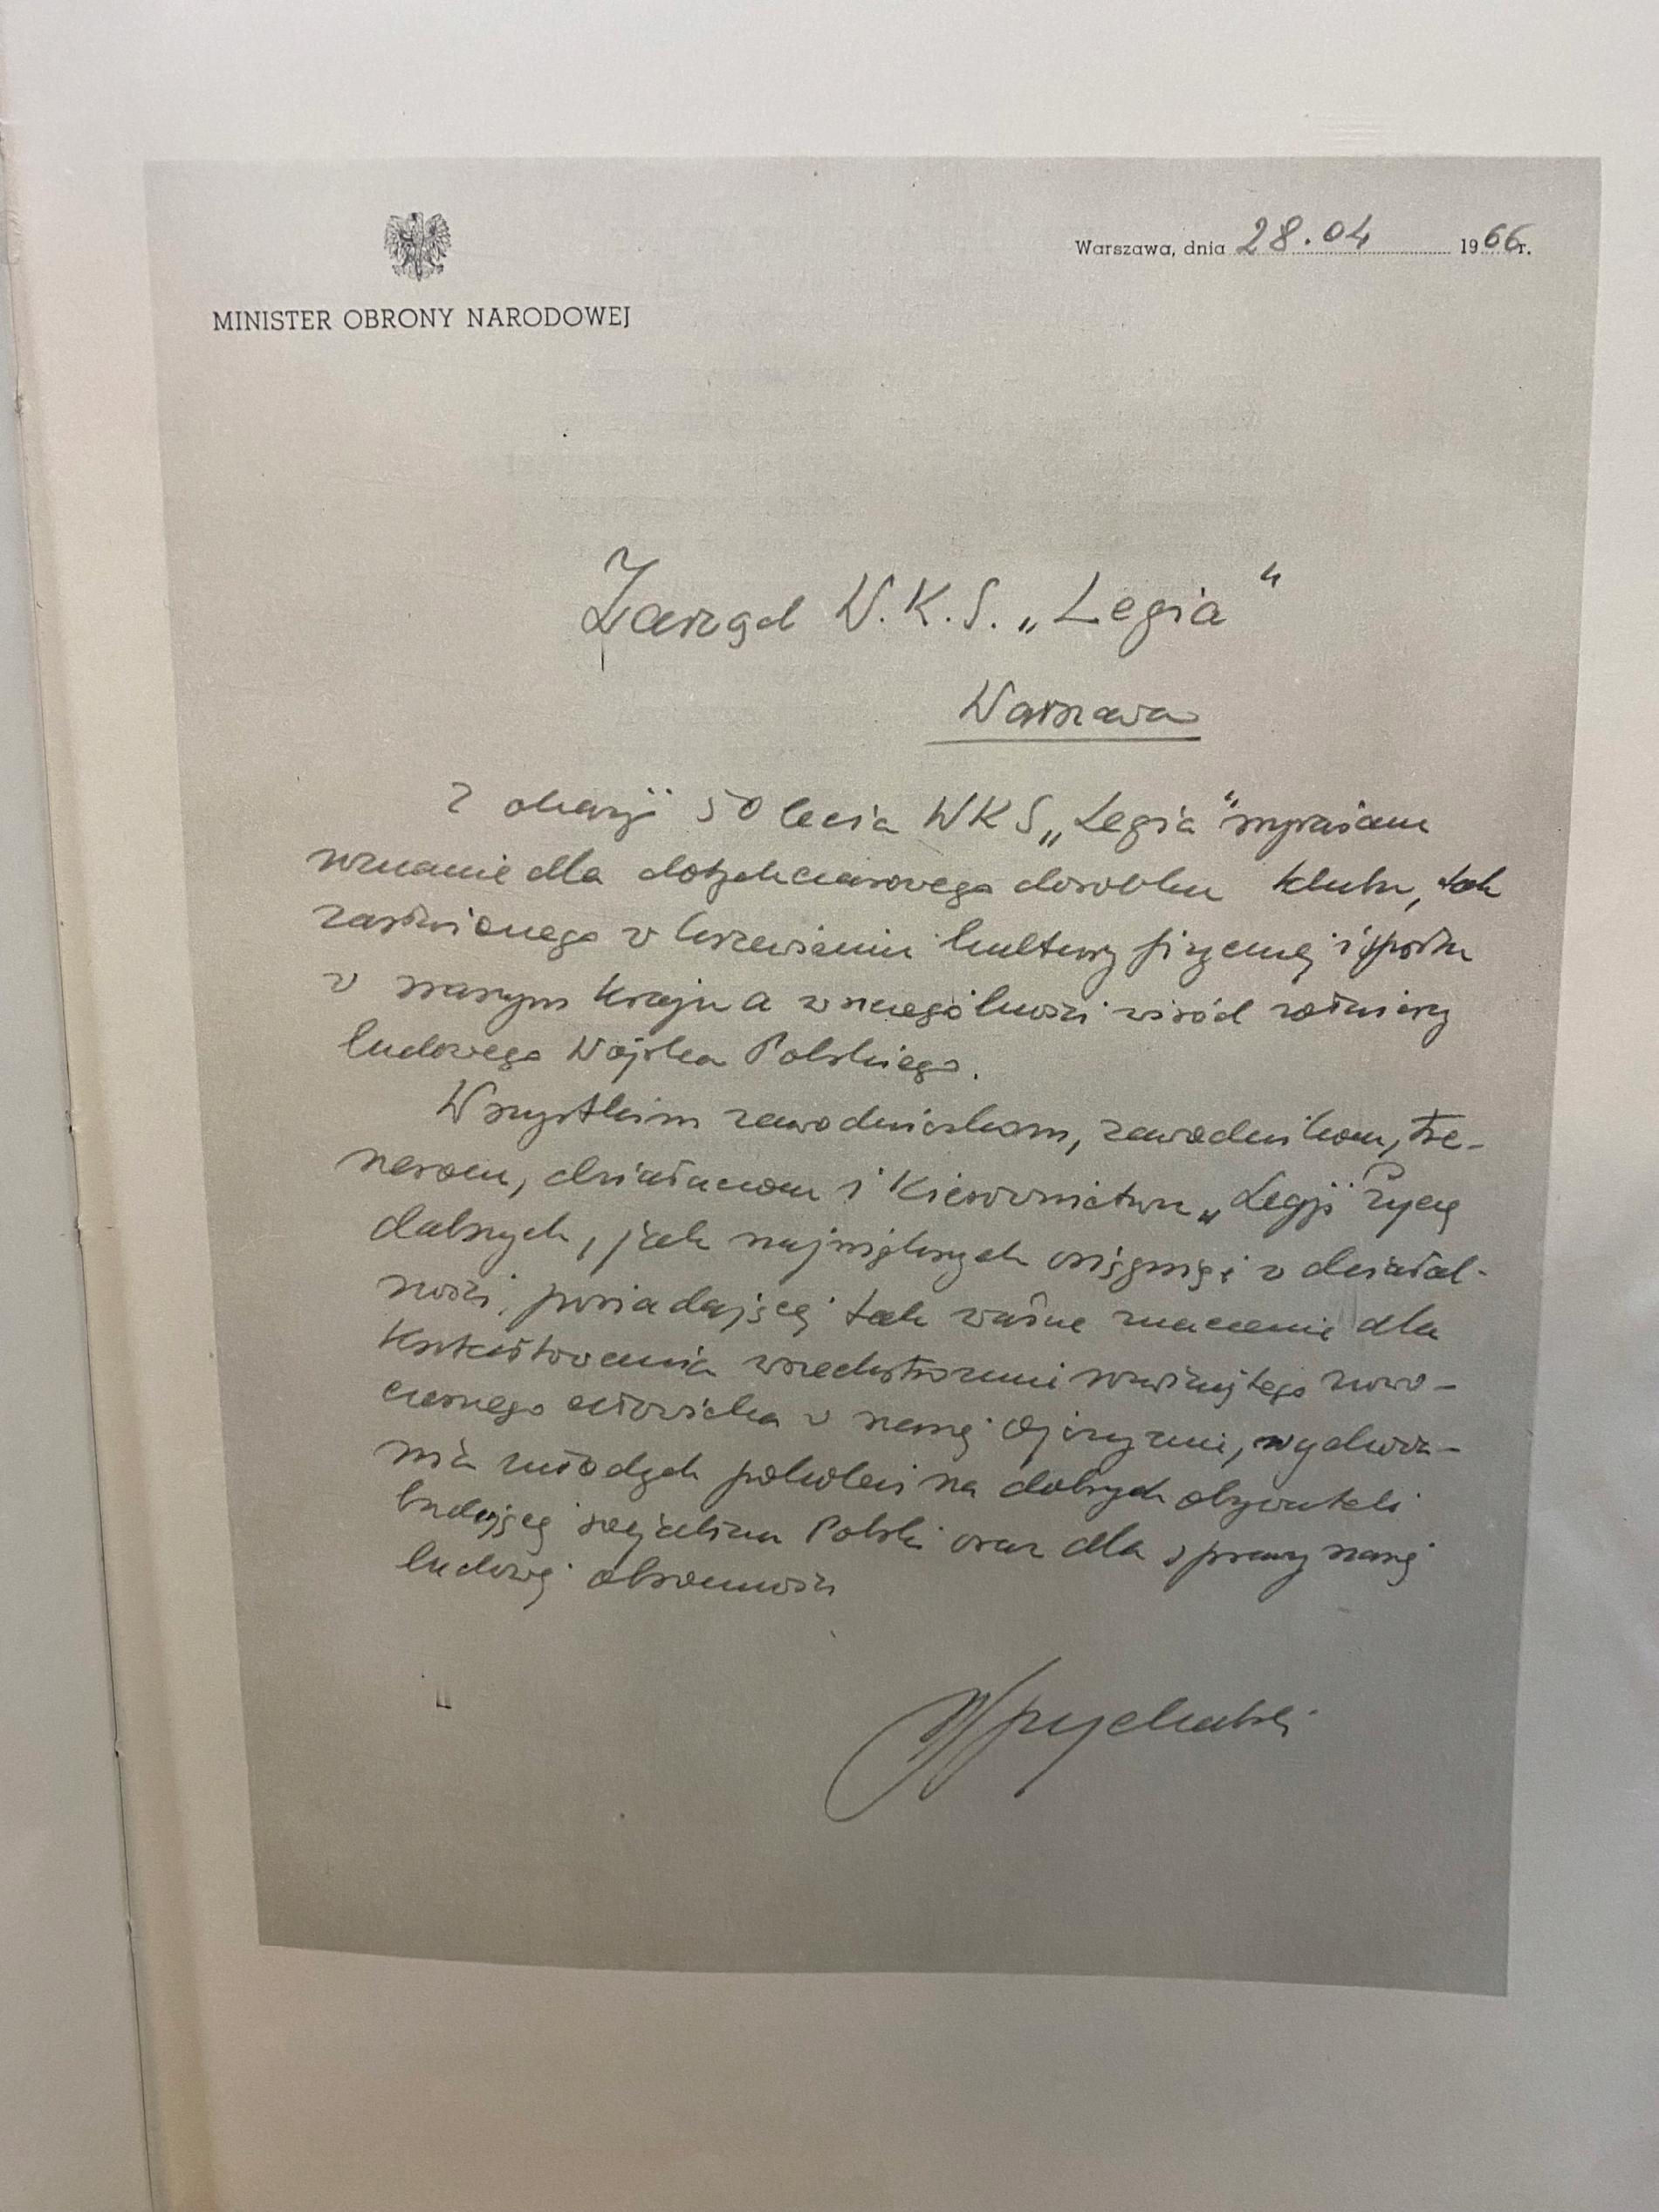 Warszawa, dnia 28.04 1966r.
MINISTER OBRONY NARODOWEJ
Zarząd W.K.S. „Legia“
Warszawa
Z okazji 50 lecia WKS „Legia“ wyrażam
uznanie dla dotychczasowego dorobku Klubu, tak
zasłużonego w krzewieniu kultury fizycznej i sportu
w naszym Kraju a w szczególności wśród żołnierzy
ludowego Wojska Polskiego.
Wszystkim zawodniczkom, zawodnikom, tre-
nerom, działaczom i Kierownictwu „Legji“ życzę
dalszych, jak największych osiągnięć w działal-
ności, posiadającej tak ważne znaczenie dla
Kształtowania wszechstronnie rozwiniętego nowo-
czesnego człowieka w naszej Ojczyźnie, wychowa-
nia młodych pokoleń na dobrych obywateli
budującej socjalizm Polski oraz dla sprawy naszej
ludowej obronności
Spychalski